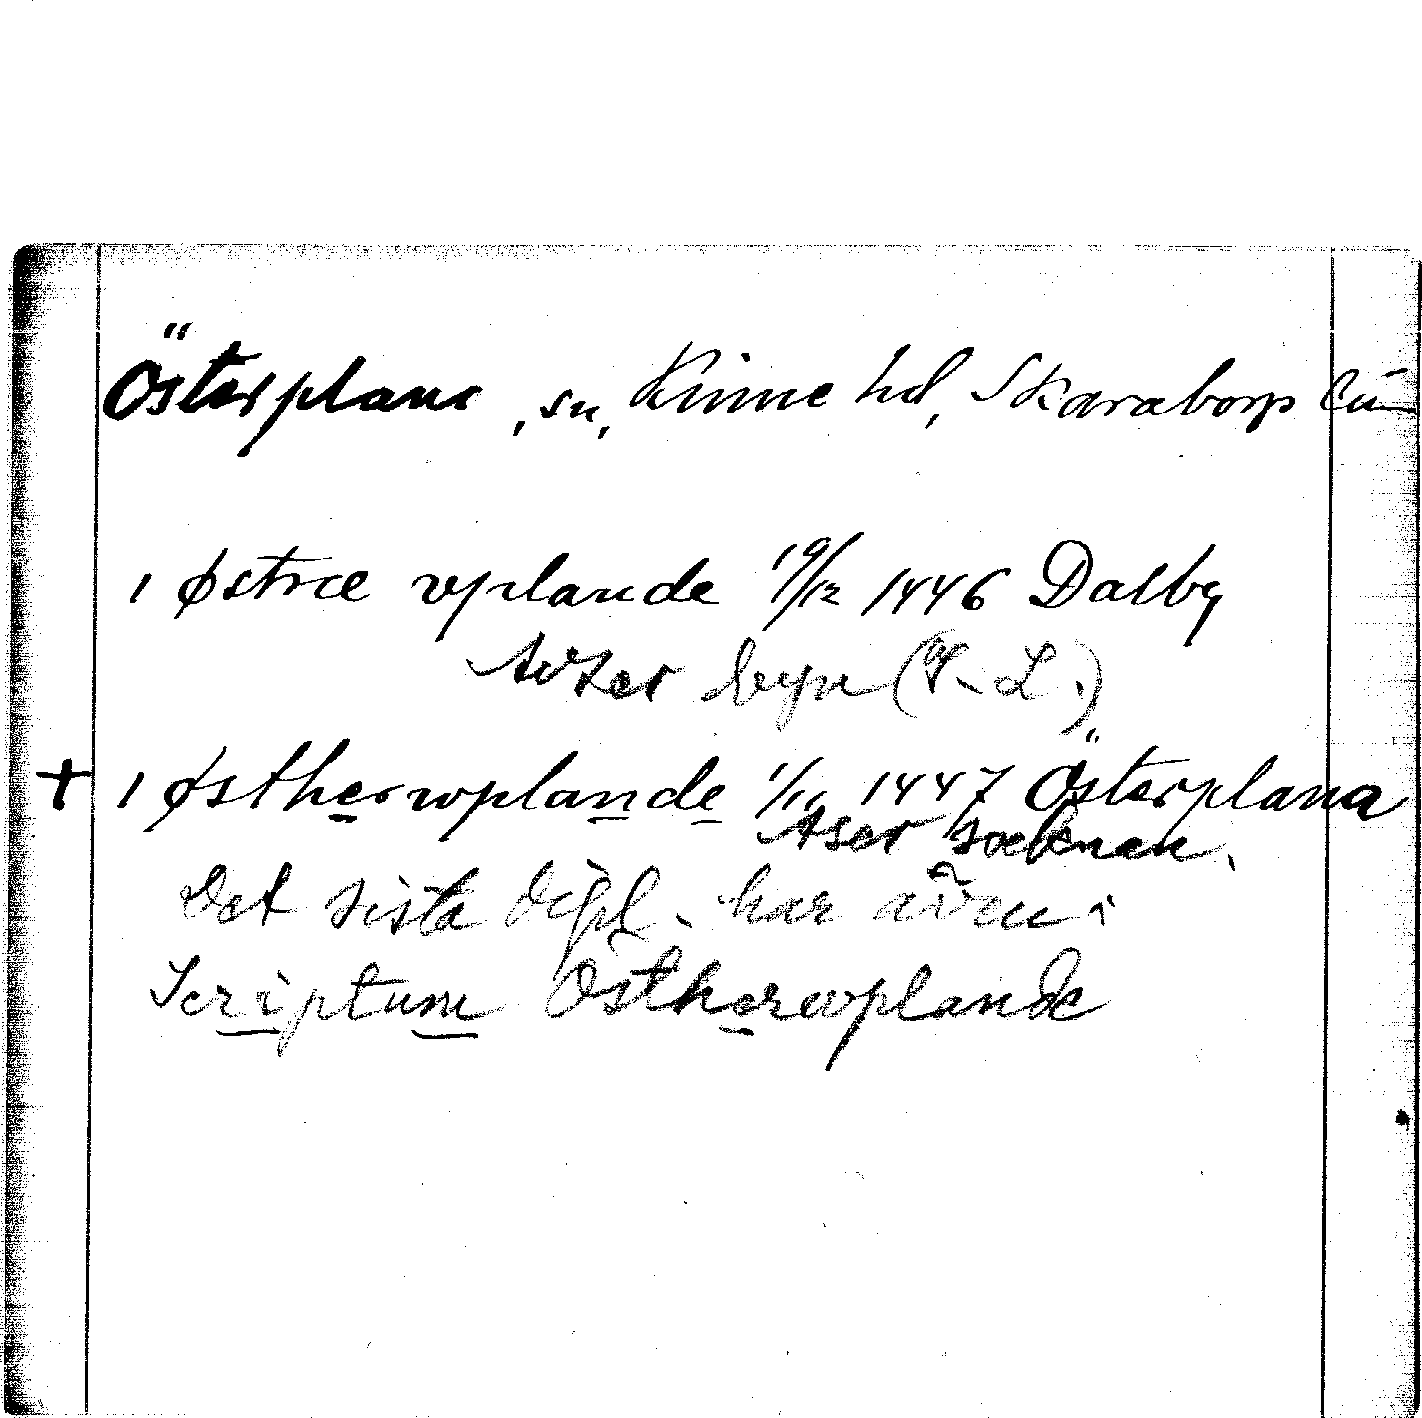 Österplana, sn, Kinne hd, Skaraborgs län
i østræ vplande 19/12 1446 Dalby
Avser byn (G. L.)
+ i østherwplande 1/11 1447 Österplana
Aser socknen.
Det sista dipl. har även i
Scriptum Östherwplande